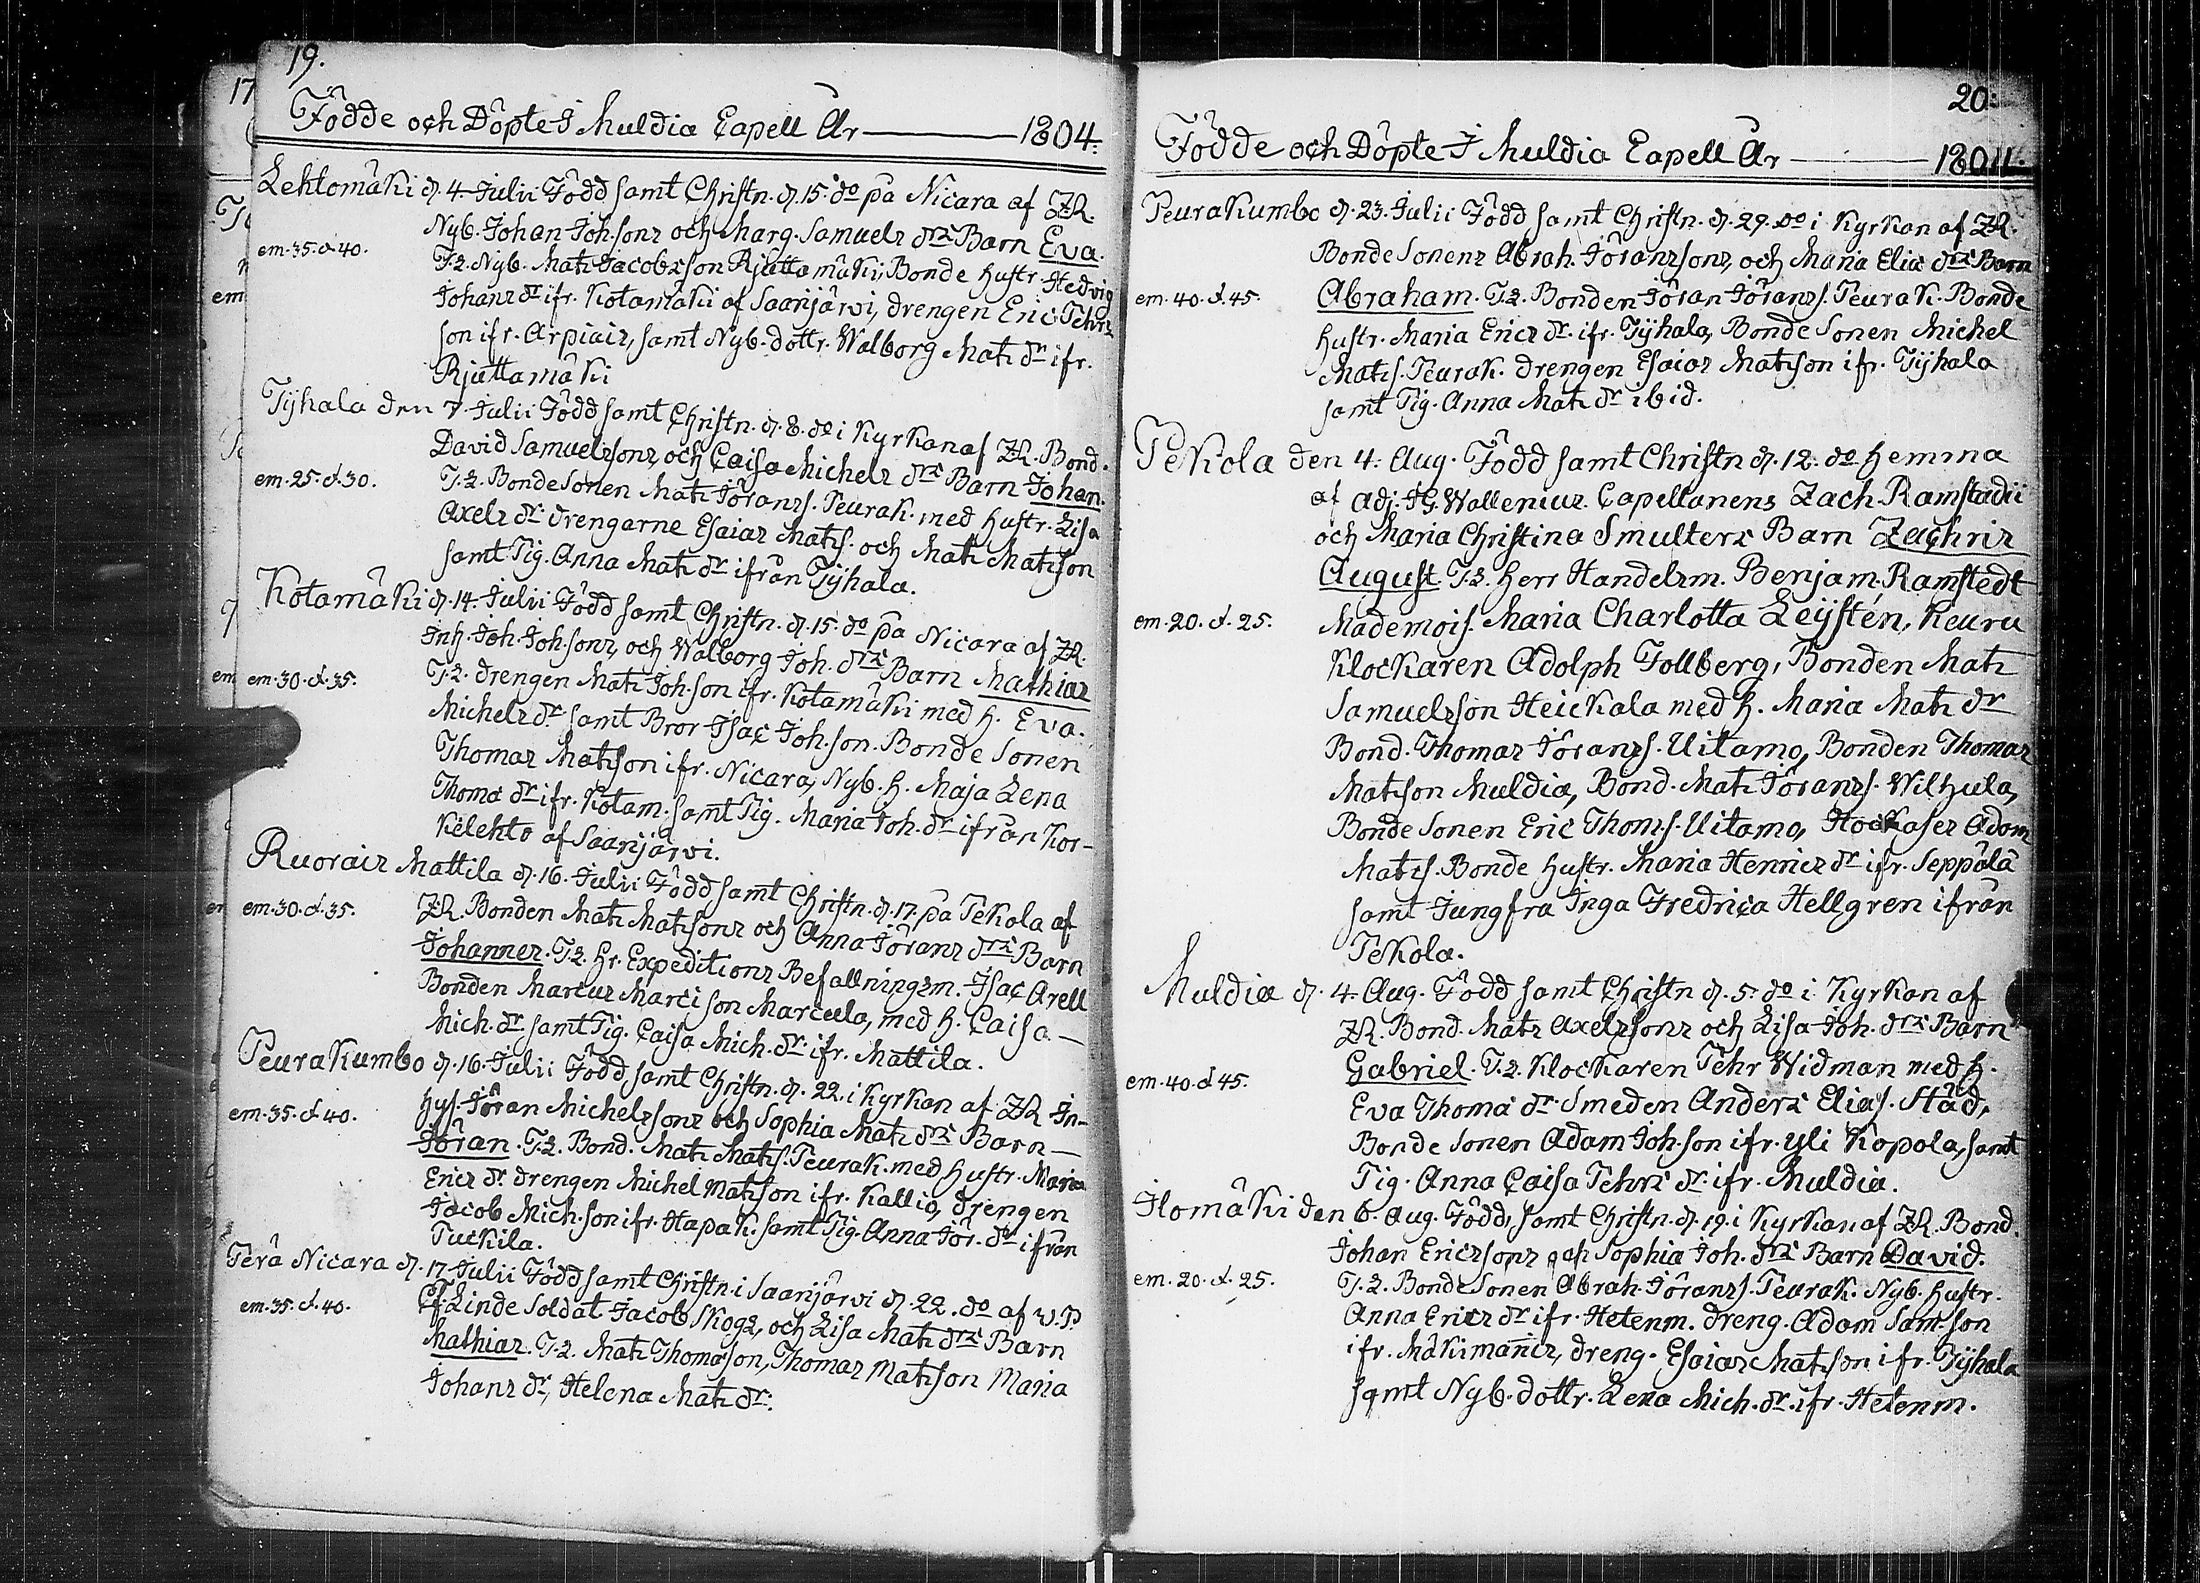 19.
Födde och Döpte I Muldia Capell År 1804.
Lehtomäki d. 4. Julii Född samt Christn. d. 15. do på Nicara af ZR.
Nyb. Johan Joh.sons och Marg. Samuels drs Barn Eva.
em. 35. & 40.
T.2. Nyb. Mats Jacobsson Rjuttamäki, Bonde Hustr. Hedvig
Johans dr ifr. Kotamäki af Saarijärvi, drengen Eric Pehrs
son ifr. Arpiais, samt Nyb. dottr. Walborg Mats dr ifr.
Rjuttamäki
Tyhala den 7. Julii Född samt Christn. d. 8. do i Kyrkan af ZR. Bond.
David Samuelssons och Caisa Michels drs Barn Johan.
em. 25. & 30.
T.2. Bonde Sonen Mats Jörans. Peurak. med Hustr. Lisa
Axels dr. drengarne Esaias Mats. och Mats Matsson
samt Pig. Anna Mats dr ifrån Tyhala.
Kotamäki d. 14. Julii Född samt Christn. d. 15. do på Nicara af ZR.
Inh. Joh. Joh.sons, och Walborg Joh. drs Barn Mathias
em. 30. & 35.
T.2. drengen Mats Joh.son ifr. Kotamäki med H. Eva.
Michels dr. samt Bror Isac Joh.son. Bonde Sonen
Thomas Matsson ifr. Nicara, Nyb. H. Maja Lena
Thoms dr ifr. Kotam. samt Pig. Maria Joh. dr ifrån Kor-
kelehto af Saarijärvi.
Ruorais Mattila d. 16. Julii Född samt Christn. d. 17. på Pekola af
em. 30. & 35.
ZR. Bonden Mats Matssons och Anna Jörans drs Barn
Johannes. T.2. Hr. Expeditions Befallningsm. Isac Arell
Bonden Marcus Marcison Marcula, med H. Caisa
Mich. dr samt Pig. Caisa Mich. dr. ifr. Mattila.
Peurakumbo d. 16. Julii Född samt Christn. d. 22. i Kyrkan af ZR In-
em. 35. & 40.
hys. Jöran Michelssons och Sophia Mats drs Barn
Jöran. T.2. Bond. Mats Mats. Peurak. med Hustr. Maria
Erics dr. drengen Michel Matsson ifr. Kallio, drengen
Jacob Mich.son ifr. Hapak. samt Pig. Anna Jör. dr ifrån
Tuckila.
Perä Nicara d. 17. Julii Född samt Christn. i Saarijärvi d. 22. do af v.P.
em. 35. & 40.
Cf. Linde Soldat Jacob Skogs, och Lisa Mats drs Barn
Mathias. T.2. Mats Thomasson, Thomas Matsson Maria
Johans dr, Helena Mats dr.
20.
Födde och Döpte I Muldia Capell År 1804.
Peurakumbo d. 23. Julii Född samt Christn. d. 29. do i Kyrkan af ZR.
Bonde Sonens Abrah. Jöranssons, och Maria Elis drs Barn
em. 40. & 45.
Abraham. T.2. Bonden Jöran Jörans. Peurak. Bonde
Hustr. Maria Erics dr. ifr. Tyhala, Bonde Sonen Michel
Mats. Peurak. drengen Esaias Matsson ifr. Tyhala
samt Pig. Anna Mats dr ibid.
Pekola den 4. Aug. Född samt Christn d. 12. do hemma
af Adj. I.G. Wallenius. Capellanens Zach. Ramstadii
och Maria Christina Smulters Barn Zachris
August T.2. Herr Handelsm. Benjam. Ramstedt
em. 20. & 25.
Mademois. Maria Charlotta Leijstén, Keuru
Klockaren Adolph Follberg, Bonden Mats
Samuelsson Heickala med H. Maria Mats dr
Bond. Thomas Jörans. Uitamo, Bonden Thomas
Matsson Muldia, Bond. Mats Jörans. Wilhula,
Bonde Sonen Eric Thoms. Uitamo, Adam
Mats. Bonde Hustr. Maria Henrics dr ifr. Seppälä
samt Jungfru Inga Fredrica Hellgren ifrån
Pekola.
Muldia d. 4. Aug. Född samt Christn d. 5. do i Kyrkan af
ZR. Bond. Mats Axelssons och Lisa Joh. drs Barn
Gabriel. T.2. Klockaren Pehr Widman med H.
em. 40. & 45.
Eva Thoms dr. Smeden Anders Elias. Städ,
Bonde Sonen Adam Joh.son ifr. Yli Kopola, samt
Pig. Anna Caisa Pehrs dr. ifr. Muldia.
Ilomäki den 6. Aug. Född, samt Christn. d. 19. i Kyrkan af ZR. Bond.
Johan Ericssons och Sophia Joh. drs Barn David.
em. 20. & 25.
T.2. Bonde Sonen Abrah. Jörans. Peurak. Nyb. Hustr.
Anna Erics dr ifr. Hetenm. dreng. Adam Sam.son
ifr. Mäkimanis, dreng. Esaias Matsson ifr. Tyhala
samt Nyb. dottr. Lena Mich. dr. ifr. Hetenm.